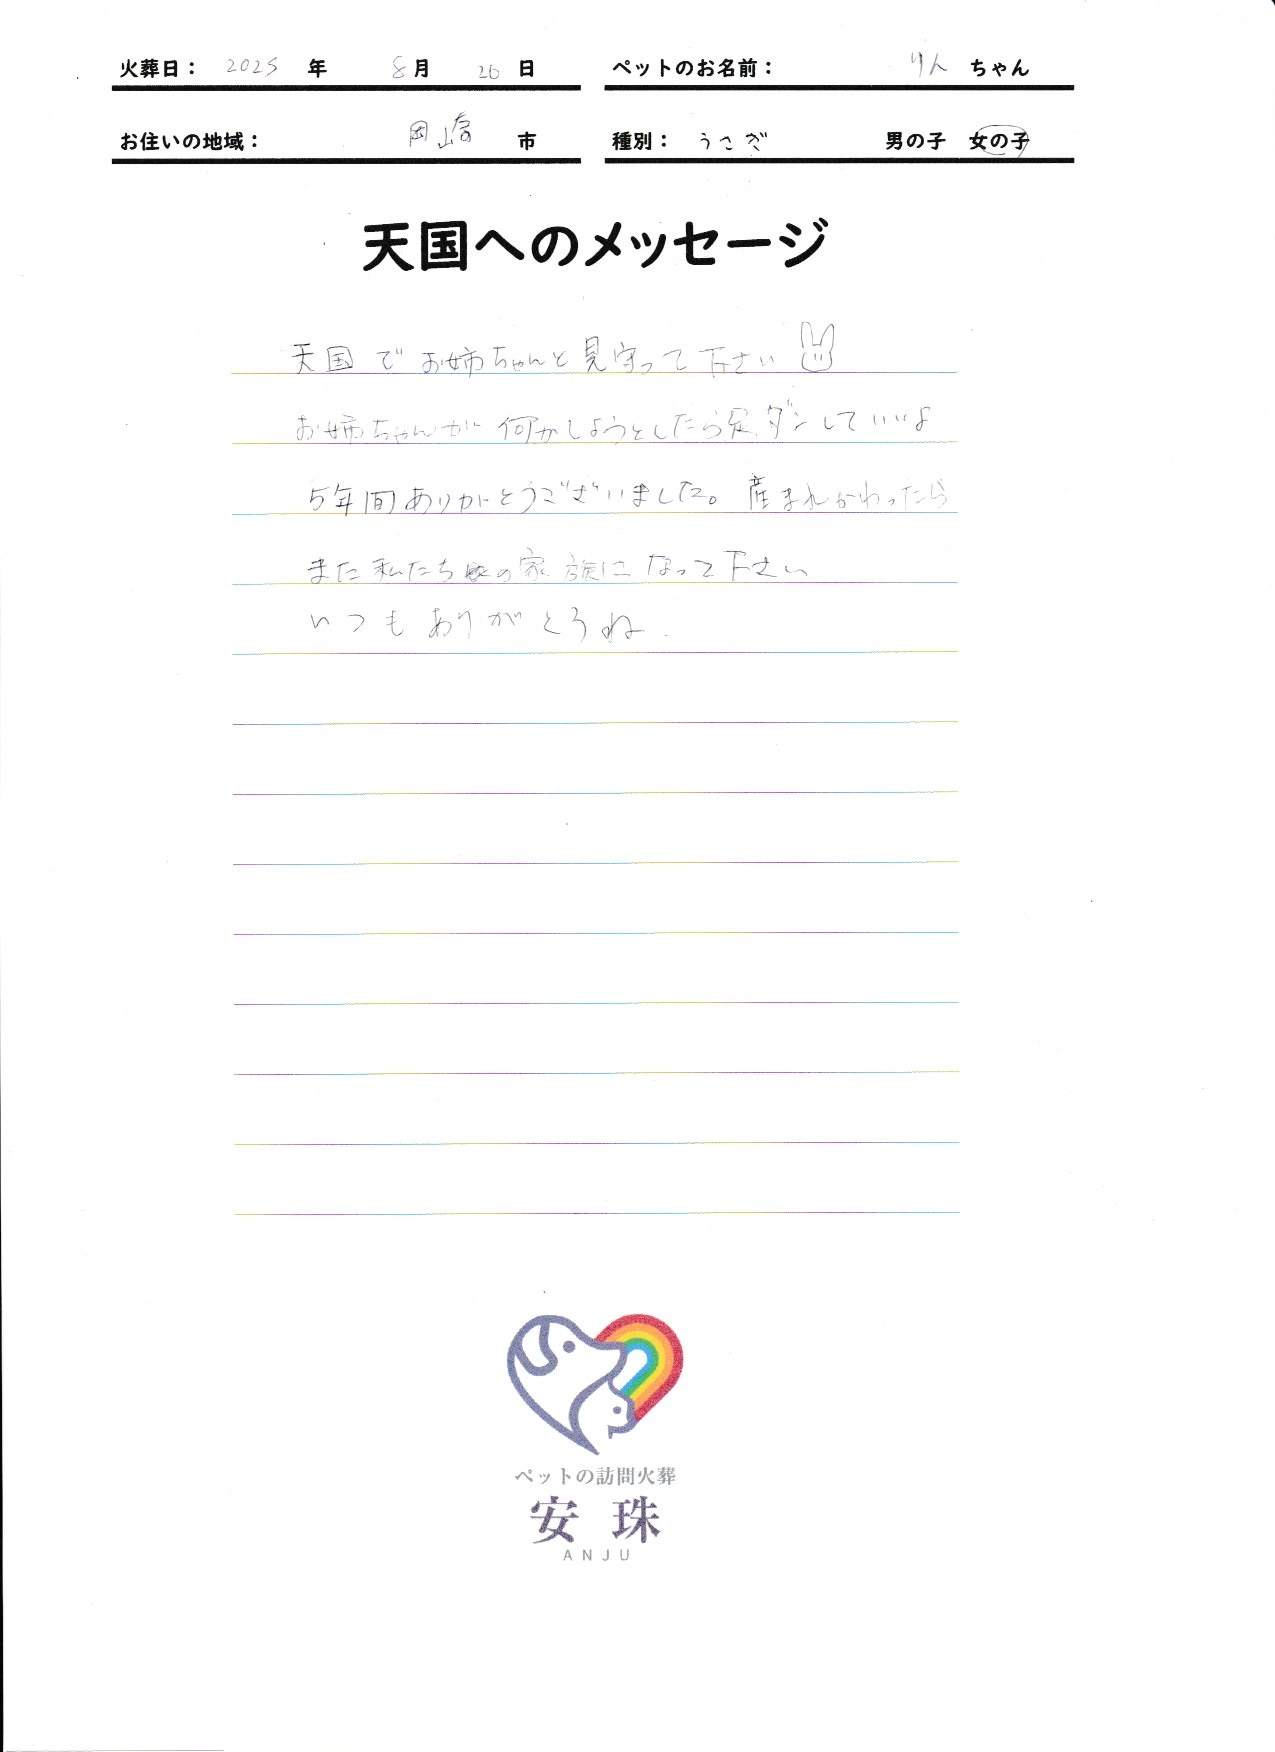 火葬日： 2025 年 8月 26 日 ペットのお名前： りん ちゃん
お住いの地域： 岡崎 市 種別： うさぎ 男の子 女の子
天国へのメッセージ
天国でお姉ちゃんと見守って下さい
お姉ちゃんが何かしようとしたら足ダンしていいよ
5年間ありがとうございました。産まれかわったら
また私たちの家族になって下さい
いつもありがとうね.
ペットの訪問火葬
安珠
ANJU